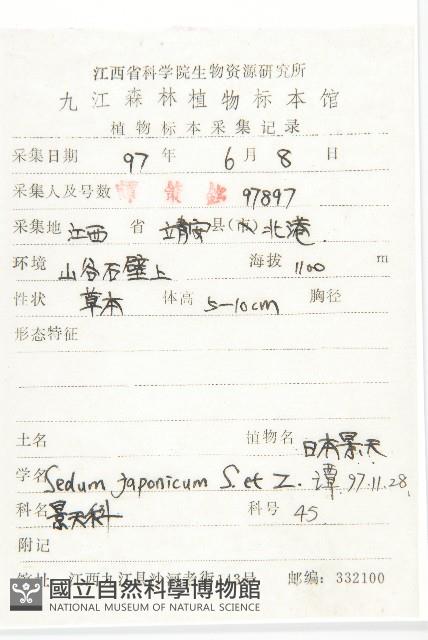 江西省科学院生物资源研究所
九江森林植物标本馆
植物标本采集记录
采集日期 97 年 6 月 8 日
采集人及号数 97897
采集地 江西 省 靖安 县(市) 北港
环境 山谷石壁上 海拔 1100 m
性状 草本 体高 5-10cm 胸径
形态特征
土名 植物名 日本景天
学名 Sedum japonicum S. et Z. 谭 97.11.28.
科名 景天科 科号 45
附记
江西九江县沙河老街113号 邮编: 332100
國立自然科學博物館
NATIONAL MUSEUM OF NATURAL SCIENCE